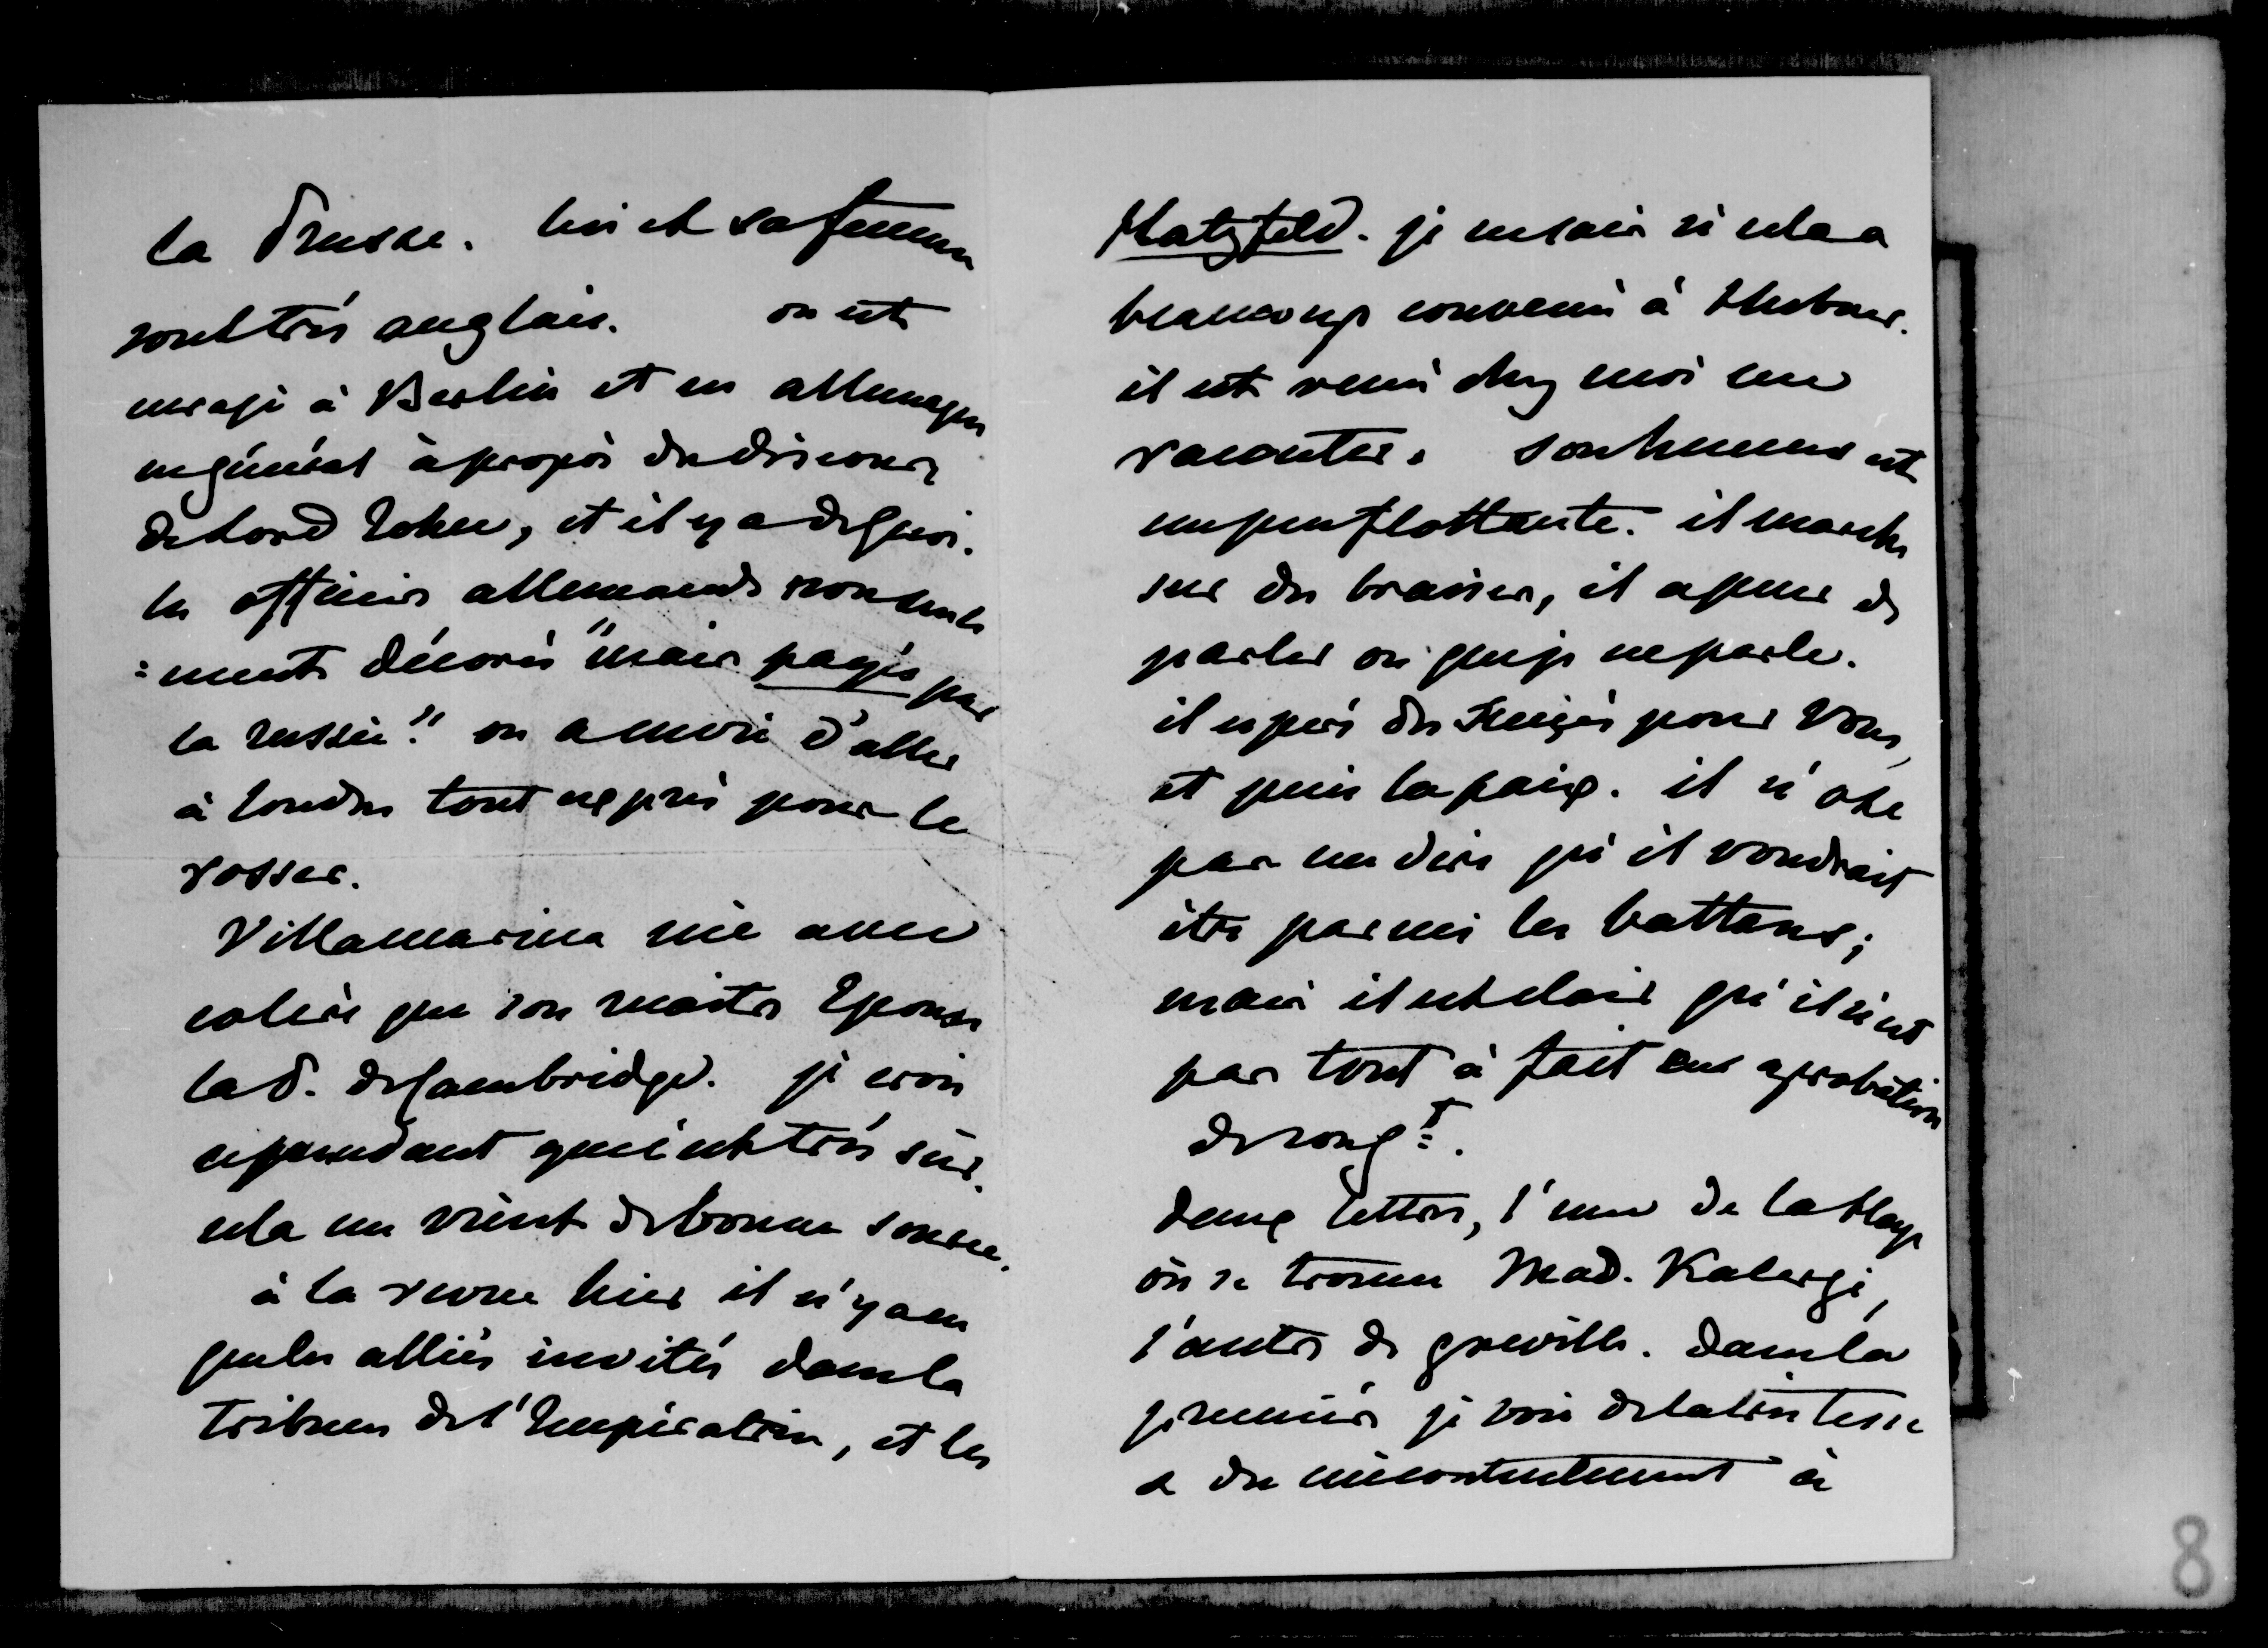 la Prusse. lui et sa femme
sont très anglais. on est
enragé à Berlin et en allemagne
en général à propos du discours
de Lord John, et il y a de quoi.
les officiers allemands non seule
=ment décorés "mais payés par
la russie." on a envie d'aller
à Londres tout exprès pour le
rosser.
Villamarina nie avec
colère que son maitre Epouse
la P. de Cambridge. je crois
cependant que c'est très sûr.
cela me vient de bonne source.
à la revue hier il n'y a eu
que les alliés invités dans la
tribune de l'Impératrice, et les
Hatzfeld. je ne sais si cela a
beaucoup convenu à Hubner.
il est venu chez moi me
raconter. son humeur est
un peu flottante. il marche
sur des braises, il a peur de
parler ou que je ne parle.
il espère des succès pour Vous,
et puis la paix. il n'ose
pas me dire qu'il voudrait
être parmi les battans;
mais il est clair qu'il n'est
pas tout à fait en aprobation
de son gt.
deux lettres, l'une de la Haye
où se trouve Mad. Kalergi,
l'autre de greville. dans la
première je vois de la tristesse
& du mécontentement à
8